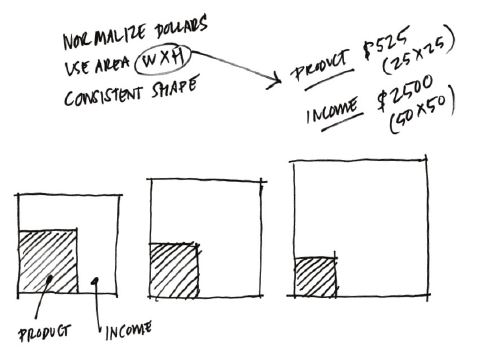 NORMALIZE DOLLARS
USE AREA WXH
CONSISTENT SHAPE
PRODUCT $525
(25X25)
INCOME $2500
(50X50)
PRODUCT
INCOME